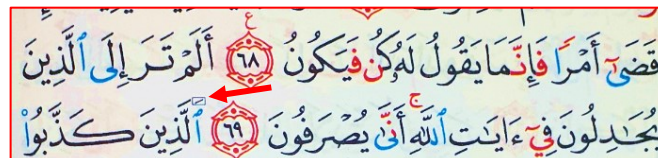 قَضَىٰٓ أَمْرًا فَإِنَّمَا يَقُولُ لَهُۥ كُن فَيَكُونُ ٦٨ أَلَمْ تَرَ إِلَى ٱلَّذِينَ
يُجَٰدِلُونَ فِىٓ ءَايَٰتِ ٱللَّهِ أَنَّىٰ يُصْرَفُونَ ٦٩ ٱلَّذِينَ كَذَّبُوا۟